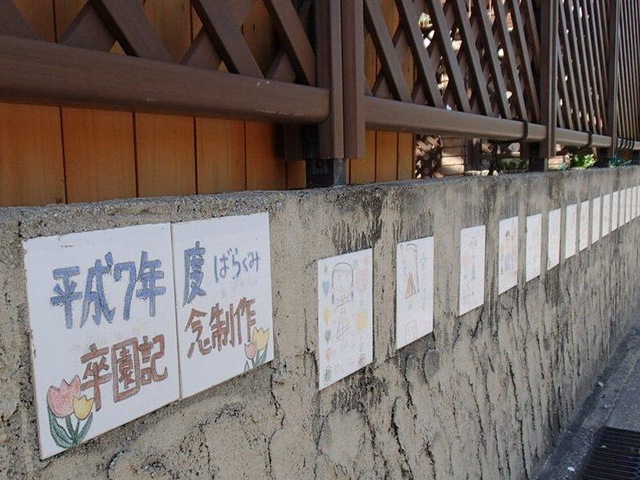 平成7年度 ばらぐみ
卒園記念制作